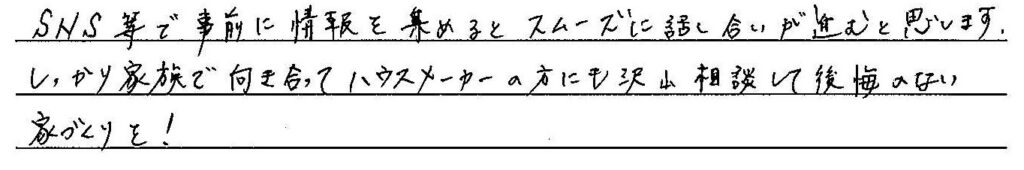 SNS等で事前に情報を集めるとスムーズに話し合いが進むと思います.
しっかり家族で向き合ってハウスメーカーの方にも沢山相談して後悔のない
家づくりを!